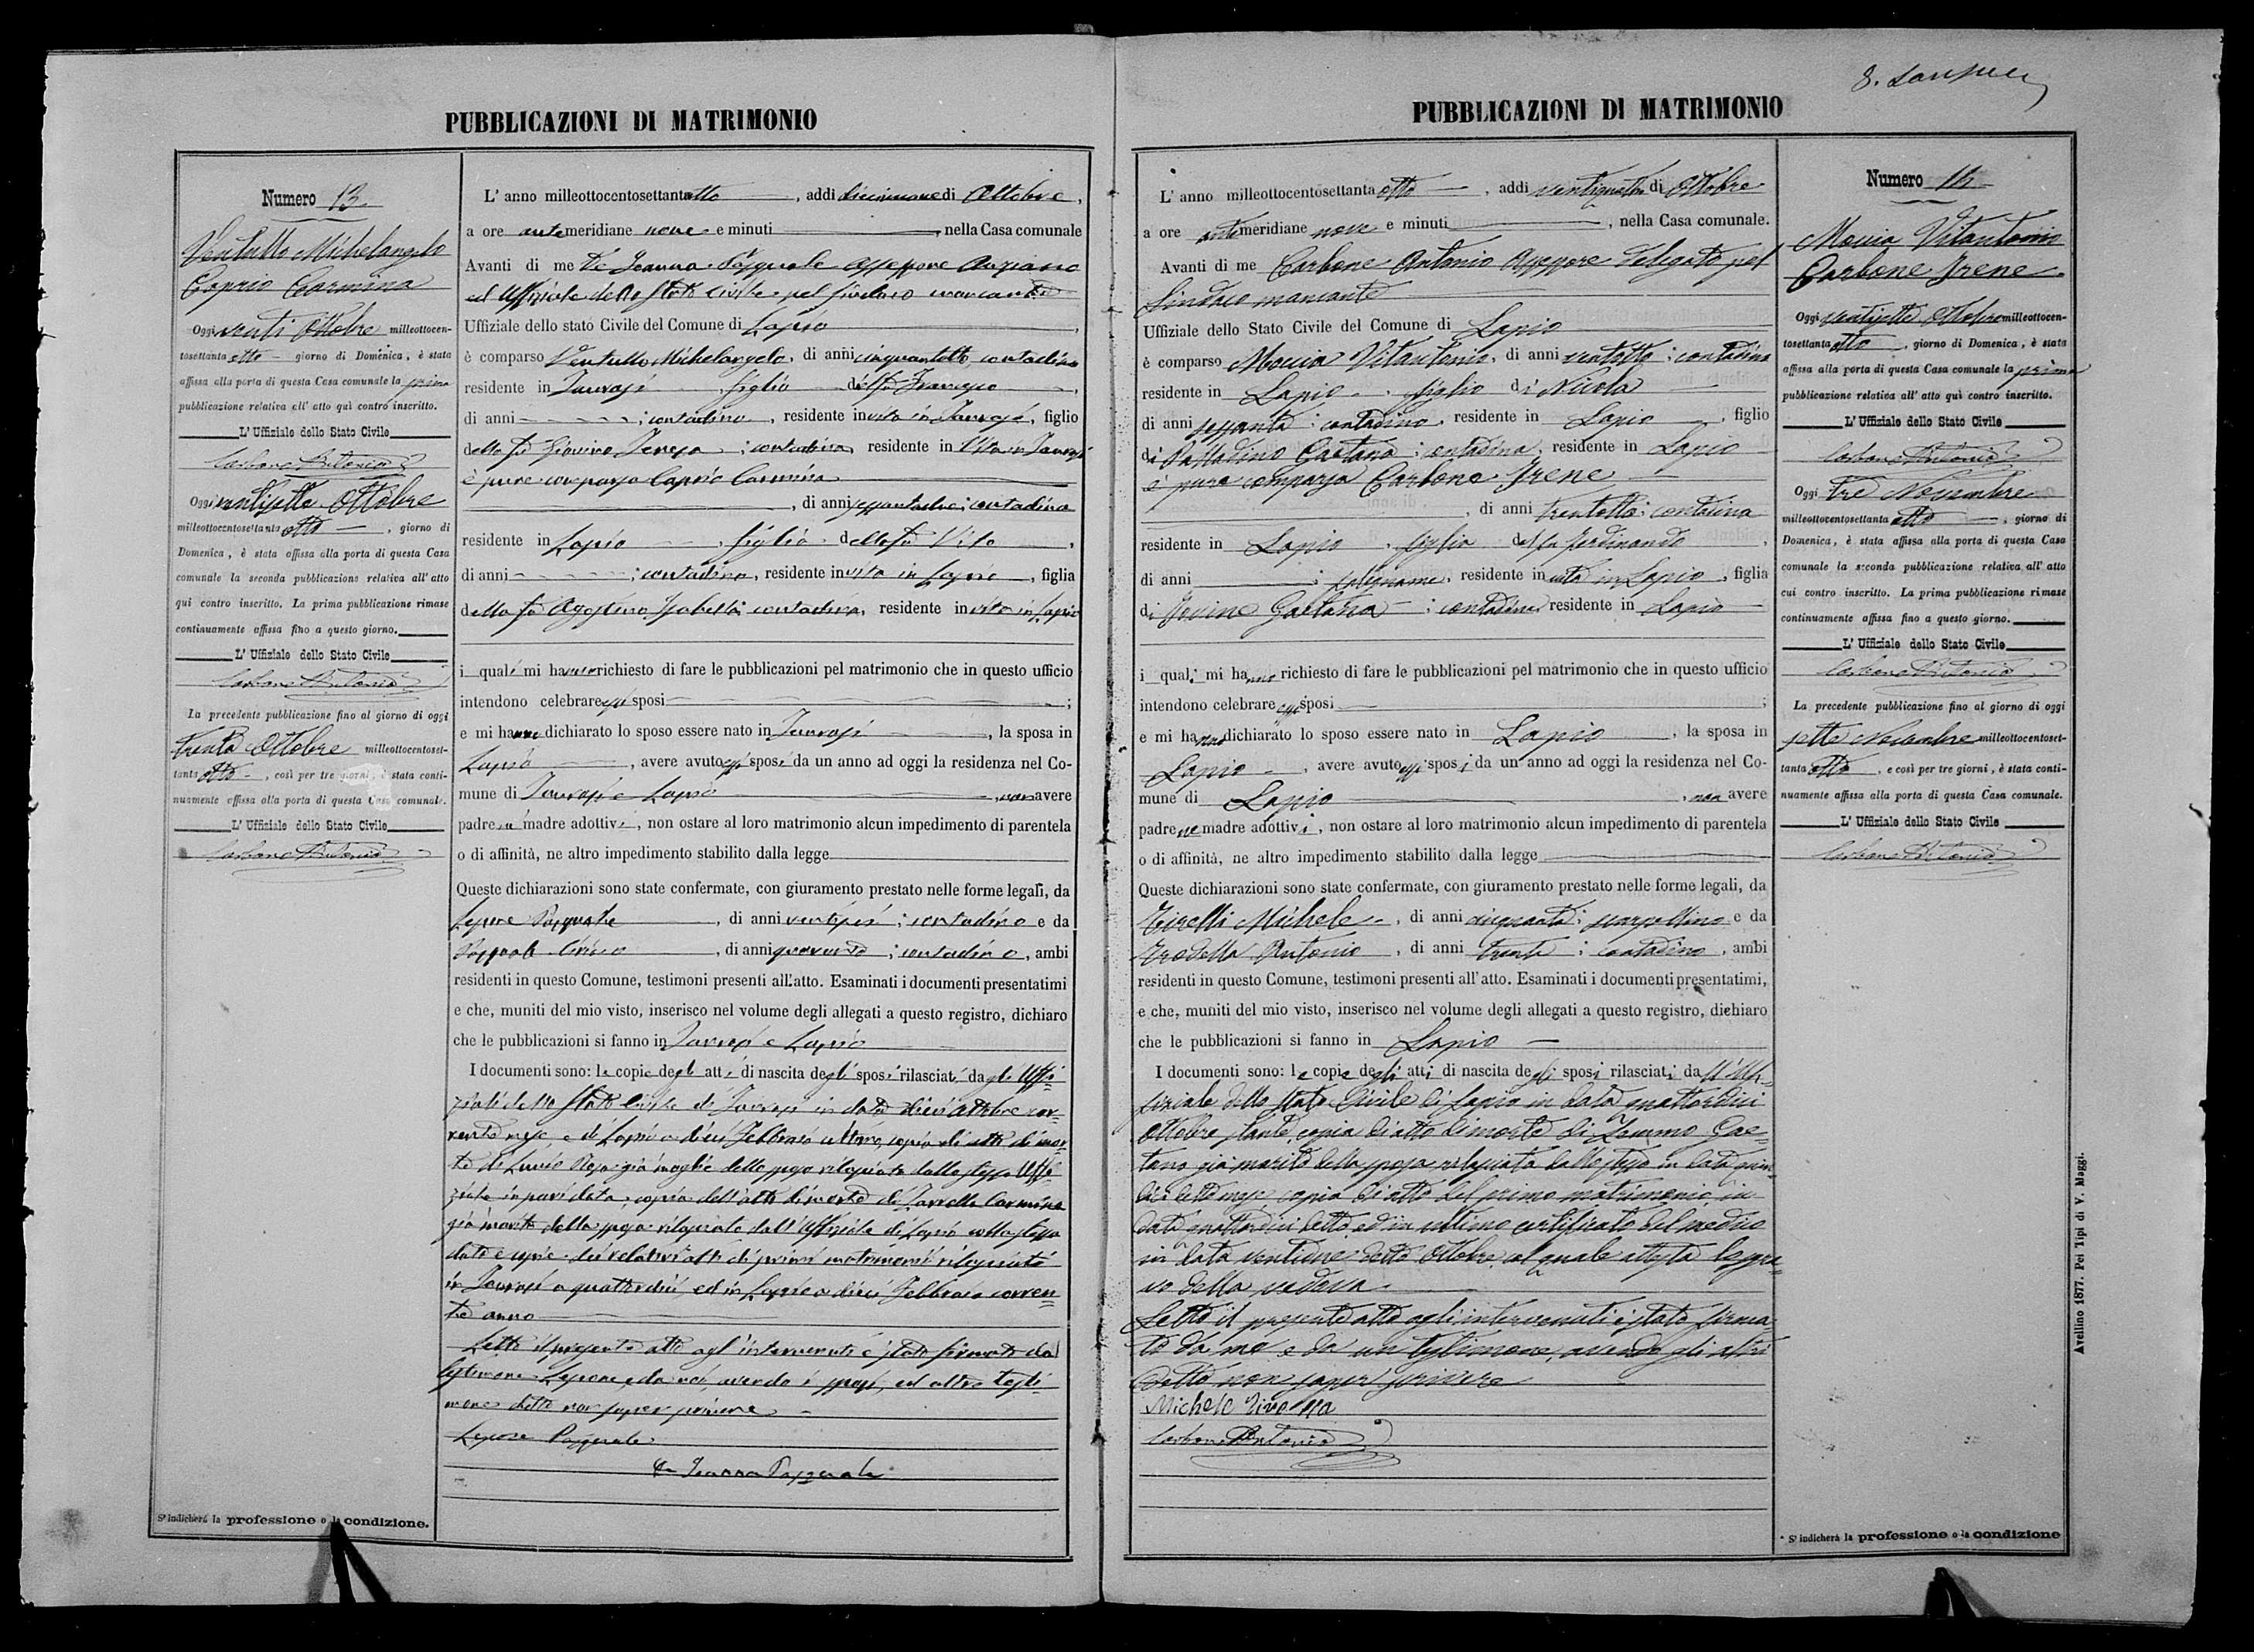 8.
PUBBLICAZIONI DI MATRIMONIO
Numero 13.
Ventullo Michelangelo
Caprio Carmina
Oggi venti Ottobre milleottocen-
tosettanta otto giorno di Domenica, è stata
affissa alla porta di questa Casa comunale la prima
pubblicazione relativa all' atto quì contro inscritto.
L' Uffiziale dello Stato Civile
Carbone Antonio
Oggi ventisette Ottobre
milleottocentosettanta otto, giorno di
Domenica, è stata affissa alla porta di questa Casa
comunale la seconda pubblicazione relativa all' atto
qui contro inscritto. La prima pubblicazione rimase
continuamente affissa fino a questo giorno.
L' Uffiziale dello Stato Civile
Carbone Antonio
La precedente pubblicazione fino al giorno di oggi
trenta Ottobre milleottocentoset-
tanta otto, così per tre giorni, è stata conti-
nuamente affissa alla porta di questa Casa comunale.
L' Uffiziale dello Stato Civile
Carbone Antonio
S' indicherà la professione o la condizione.
L' anno milleottocentosettantaotto, addì diciannove di Ottobre,
a ore antemeridiane nove e minuti, nella Casa comunale
Avanti di me De Ieanna Pasquale Assessore Anziano
ed Uffiziale dello Stato Civile pel Sindaco mancante
Uffiziale dello stato Civile del Comune di Lapio
è comparso Ventullo Michelangelo, di anni cinquantotto, contadino
residente in Taurasi, figlio del fu Francesco
di anni; contadino, residente in vita in Taurasi, figlio
della fu Teresa; contadina, residente in vita in Taurasi
è pure comparsa Caprio Carmina
, di anni sessantadue; contadina
residente in Lapio, figlia del fu Vito,
di anni; contadino, residente in vita in Lapio, figlia
della fu Agostino Isabella; contadina, residente in vita in Lapio
i quali mi hanno richiesto di fare le pubblicazioni pel matrimonio che in questo ufficio
intendono celebrare essi sposi;
e mi hanno dichiarato lo sposo essere nato in Taurasi, la sposa in
Lapio, avere avuto essi sposi da un anno ad oggi la residenza nel Co-
mune di Taurasi e Lapio, non avere
padre nè madre adottivi, non ostare al loro matrimonio alcun impedimento di parentela
o di affinità, ne altro impedimento stabilito dalla legge
Queste dichiarazioni sono state confermate, con giuramento prestato nelle forme legali, da
Lepore Pasquale, di anni ventisei; contadino e da
, di anni quaranta; contadino, ambi
residenti in questo Comune, testimoni presenti all'atto. Esaminati i documenti presentatimi
e che, muniti del mio visto, inserisco nel volume degli allegati a questo registro, dichiaro
che le pubblicazioni si fanno in Taurasi e Lapio
I documenti sono: le copie degli atti di nascita degli sposi rilasciati dagli Uffi-
ziali dello Stato Civile di Taurasi in data dieci Ottobre cor-
rente mese e di Lapio a dieci Febbraio ultimo, copia di atto di mor-
te di già moglie dello sposo rilasciata dallo stesso Uffi-
ziale in pari data, copia dell'atto di morte di Carmine
già marito della sposa rilasciata dall'Uffiziale di Lapio colla stessa
data e copie dei relativi atti di primi matrimonii rilasciate
in Taurasi a ed in Lapio a dieci Febbraio corren-
te anno
Letto il presente atto agl'intervenuti è stato firmato dal
testimone Lepore, e da noi, avendo i sposi, ed altro testi-
mone detto non saper scrivere
Lepore Pasquale
De Ieanna Pasquale
PUBBLICAZIONI DI MATRIMONIO
L' anno milleottocentosettanta otto, addì ventiquattro di Ottobre
a ore antemeridiane nove e minuti, nella Casa comunale.
Avanti di me Carbone Antonio Assessore delegato pel
Sindaco mancante
Uffiziale dello Stato Civile del Comune di Lapio
è comparso Moccia Vitantonio, di anni ventotto; contadino
residente in Lapio, figlio di Nicola
di anni sessanta; contadino, residente in Lapio, figlio
di Palladino Gaetana; contadina, residente in Lapio
è pure comparsa Carbone Irene
, di anni trentotto; contadina
residente in Lapio, figlia del fu Ferdinando,
di anni; falegname, residente in vita in Lapio, figlia
di Iovine Gaetana; contadina, residente in Lapio
i quali mi hanno richiesto di fare le pubblicazioni pel matrimonio che in questo ufficio
intendono celebrare essi sposi;
e mi hanno dichiarato lo sposo essere nato in Lapio, la sposa in
Lapio, avere avuto essi sposi da un anno ad oggi la residenza nel Co-
mune di Lapio, non avere
padre ne madre adottivi, non ostare al loro matrimonio alcun impedimento di parentela
o di affinità, ne altro impedimento stabilito dalla legge
Queste dichiarazioni sono state confermate, con giuramento prestato nelle forme legali, da
Michele, di anni cinquanta; scarpellino e da
Antonio, di anni trenta; contadino, ambi
residenti in questo Comune, testimoni presenti all' atto. Esaminati i documenti presentatimi,
e che, muniti del mio visto, inserisco nel volume degli allegati a questo registro, dichiaro
che le pubblicazioni si fanno in Lapio
I documenti sono: le copie degli atti di nascita degli sposi rilasciati dall'Uf-
fiziale dello Stato Civile di Lapio in data quattordici
Ottobre stante, copia di atto di morte di Gae-
tano già marito della sposa rilasciata dallo stesso in data quin-
dici detto mese copia di atto del primo matrimonio in
data quattordici detto, ed in ultimo certificato del medico
in data ventidue detto Ottobre, al quale attesta lo sgra-
vo della vedova.
Letto il presente atto agli intervenuti è stato firma-
to da me e da un testimone, avendo gli altri
detto non saper scrivere
Michele
Carbone Antonio
Numero 14
Moccia Vitantonio
Carbone Irene
Oggi ventisette Ottobre milleottocen-
tosettanta otto, giorno di Domenica, è stata
affissa alla porta di questa Casa comunale la prima
pubblicazione relativa all' atto quì contro inscritto.
L' Uffiziale dello Stato Civile
Carbone Antonio
Oggi tre Novembre
milleottocentosettanta otto, giorno di
Domenica, è stata affissa alla porta di questa Casa
comunale la seconda pubblicazione relativa all' atto
cui contro inscritto. La prima pubblicazione rimase
continuamente affissa fino a questo giorno.
L' Uffiziale dello Stato Civile
Carbone Antonio
La precedente pubblicazione fino al giorno di oggi
sette Novembre milleottocentoset-
tanta otto, e così per tre giorni, è stata conti-
nuamente affissa alla porta di questa Casa comunale.
L' Uffiziale dello Stato Civile
Carbone Antonio
* S' indicherà la professione o la condizione
Avellino 1877. Pei Tipi di V. Maggi.